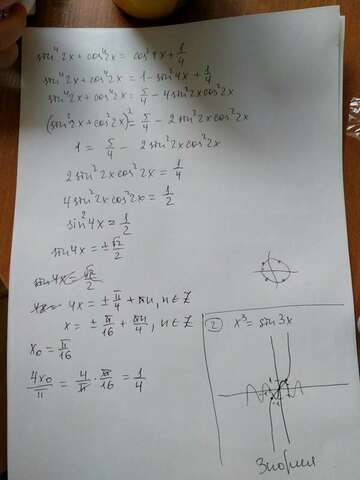 sin⁴2x + cos⁴2x = cos²4x + 1/4
sin⁴2x + cos⁴2x = 1 - sin²4x + 1/4
sin⁴2x + cos⁴2x = 5/4 - 4sin²2x cos²2x
(sin²2x + cos²2x)² = 5/4 - 2sin²2x cos²2x
1 = 5/4 - 2sin²2x cos²2x
2sin²2x cos²2x = 1/4
4sin²2x cos²2x = 1/2
sin²4x = 1/2
sin4x = ± √2/2
sin4x = √2/2
4x = ± π/4 + πn, n ∈ Z
x = ± π/16 + πn/4, n ∈ Z
x₀ = π/16
4x₀/π = 4/π · π/16 = 1/4
2 x³ = sin3x